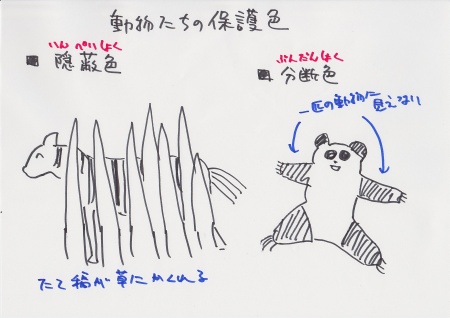 動物たちの保護色
いんぺいしょく
■ 隠蔽色
ぶんだんしょく
■ 分断色
一匹の動物に
見えない
たて縞が草にかくれる